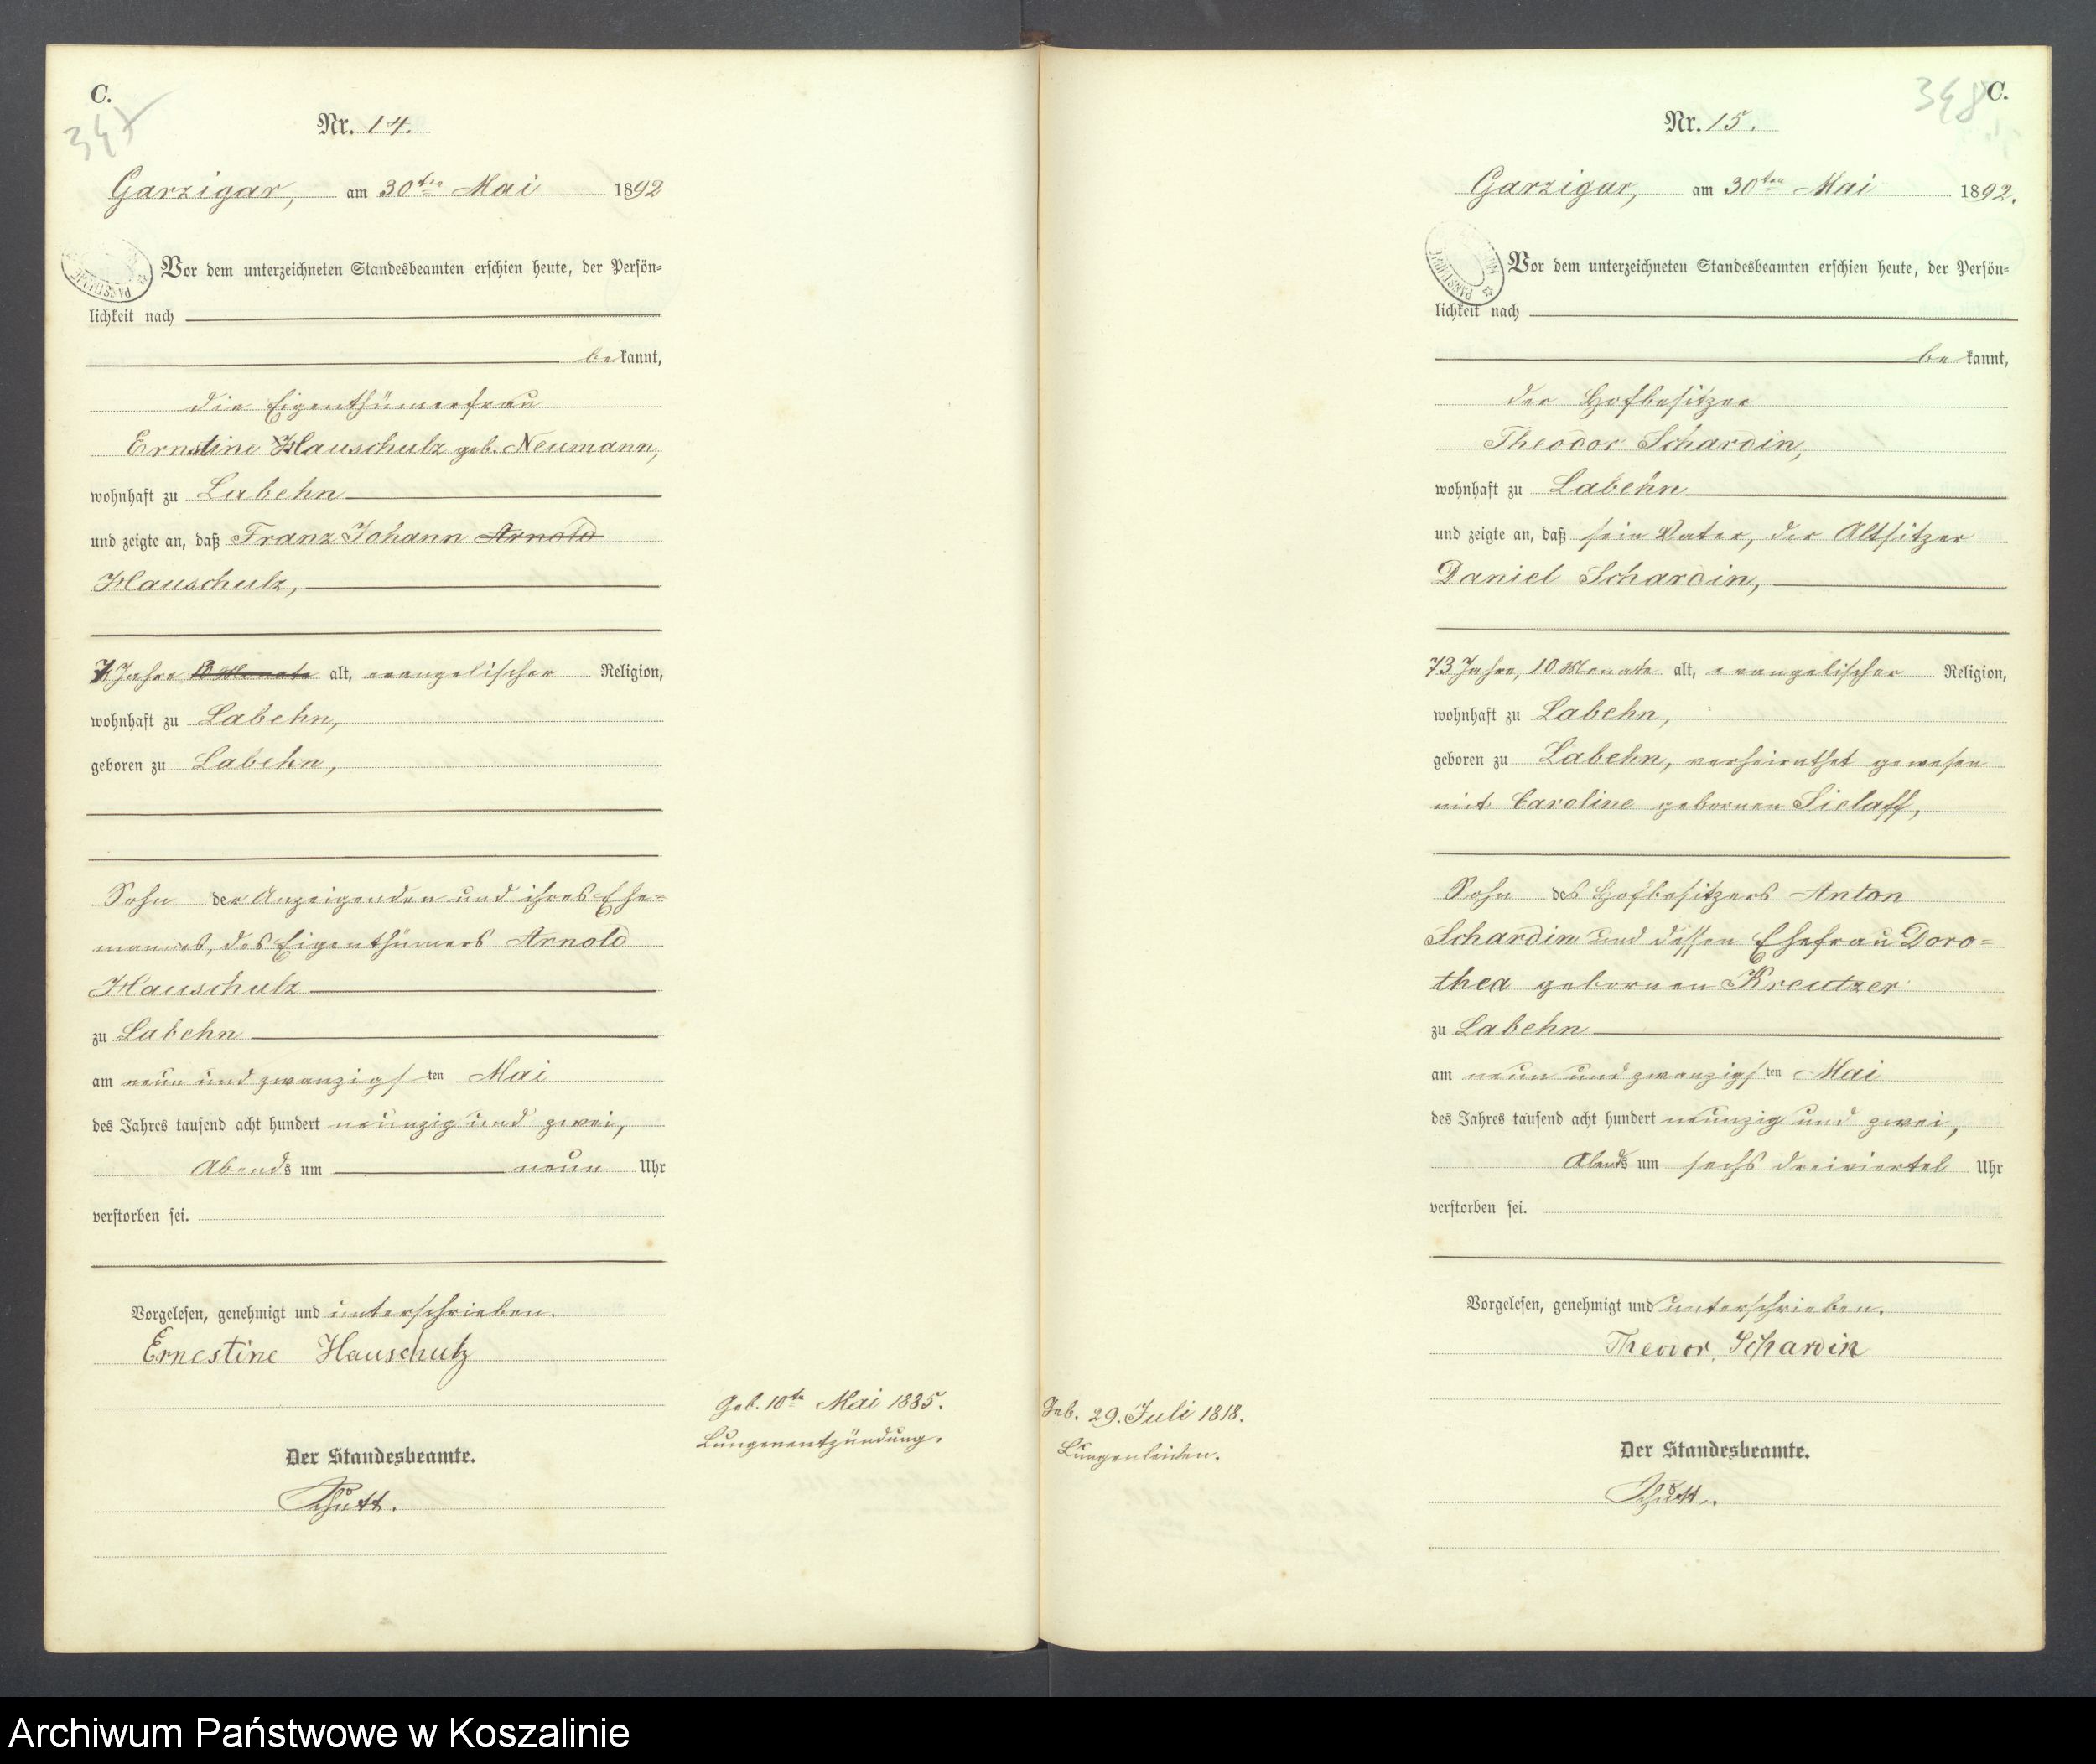 C.
347
Nr. 14.
Garzigar, am 30ten Mai 1892
Vor dem unterzeichneten Standesbeamten erschien heute, der Persön-
lichkeit nach
bekannt,
die Eigenthümerfrau
Ernstine Hauschulz geb. Neumann,
wohnhaft zu Labehn
und zeigte an, daß Franz Johann Arnold
Hauschulz,
7 Jahre Monate alt, evangelischer Religion,
wohnhaft zu Labehn,
geboren zu Labehn,
Sohn der Anzeigenden und ihres Ehe-
mannes, des Eigenthümers Arnold
Hauschulz
zu Labehn
am neun und zwanzigsten Mai
des Jahres tausend acht hundert neunzig und zwei,
Abends um neun Uhr
verstorben sei.
Vorgelesen, genehmigt und unterschrieben.
Ernestine Hauschulz
Der Standesbeamte.
Geb. 10te Mai 1885.
Lungenentzündung.
348
C.
Nr. 15.
Garzigar, am 30ten Mai 1892.
Vor dem unterzeichneten Standesbeamten erschien heute, der Persön-
lichkeit nach
bekannt,
der Hofbesitzer
Theodor Schardin,
wohnhaft zu Labehn
und zeigte an, daß sein Vater, der Altsitzer
Daniel Schardin,
73 Jahre, 10 Monate alt, evangelischer Religion,
wohnhaft zu Labehn,
geboren zu Labehn, verheirathet gewesen
mit Caroline gebornen Sielaff,
Sohn des Hofbesitzers Anton
Schardin und dessen Ehefrau Doro-
thea gebornen Kreutzer
zu Labehn
am neun und zwanzigsten Mai
des Jahres tausend acht hundert neunzig und zwei,
Abends um sechs dreiviertel Uhr
verstorben sei.
Vorgelesen, genehmigt und unterschrieben.
Theodor Schardin
Der Standesbeamte.
Geb. 29. Juli 1818.
Lungenleiden.
Archiwum Państwowe w Koszalinie